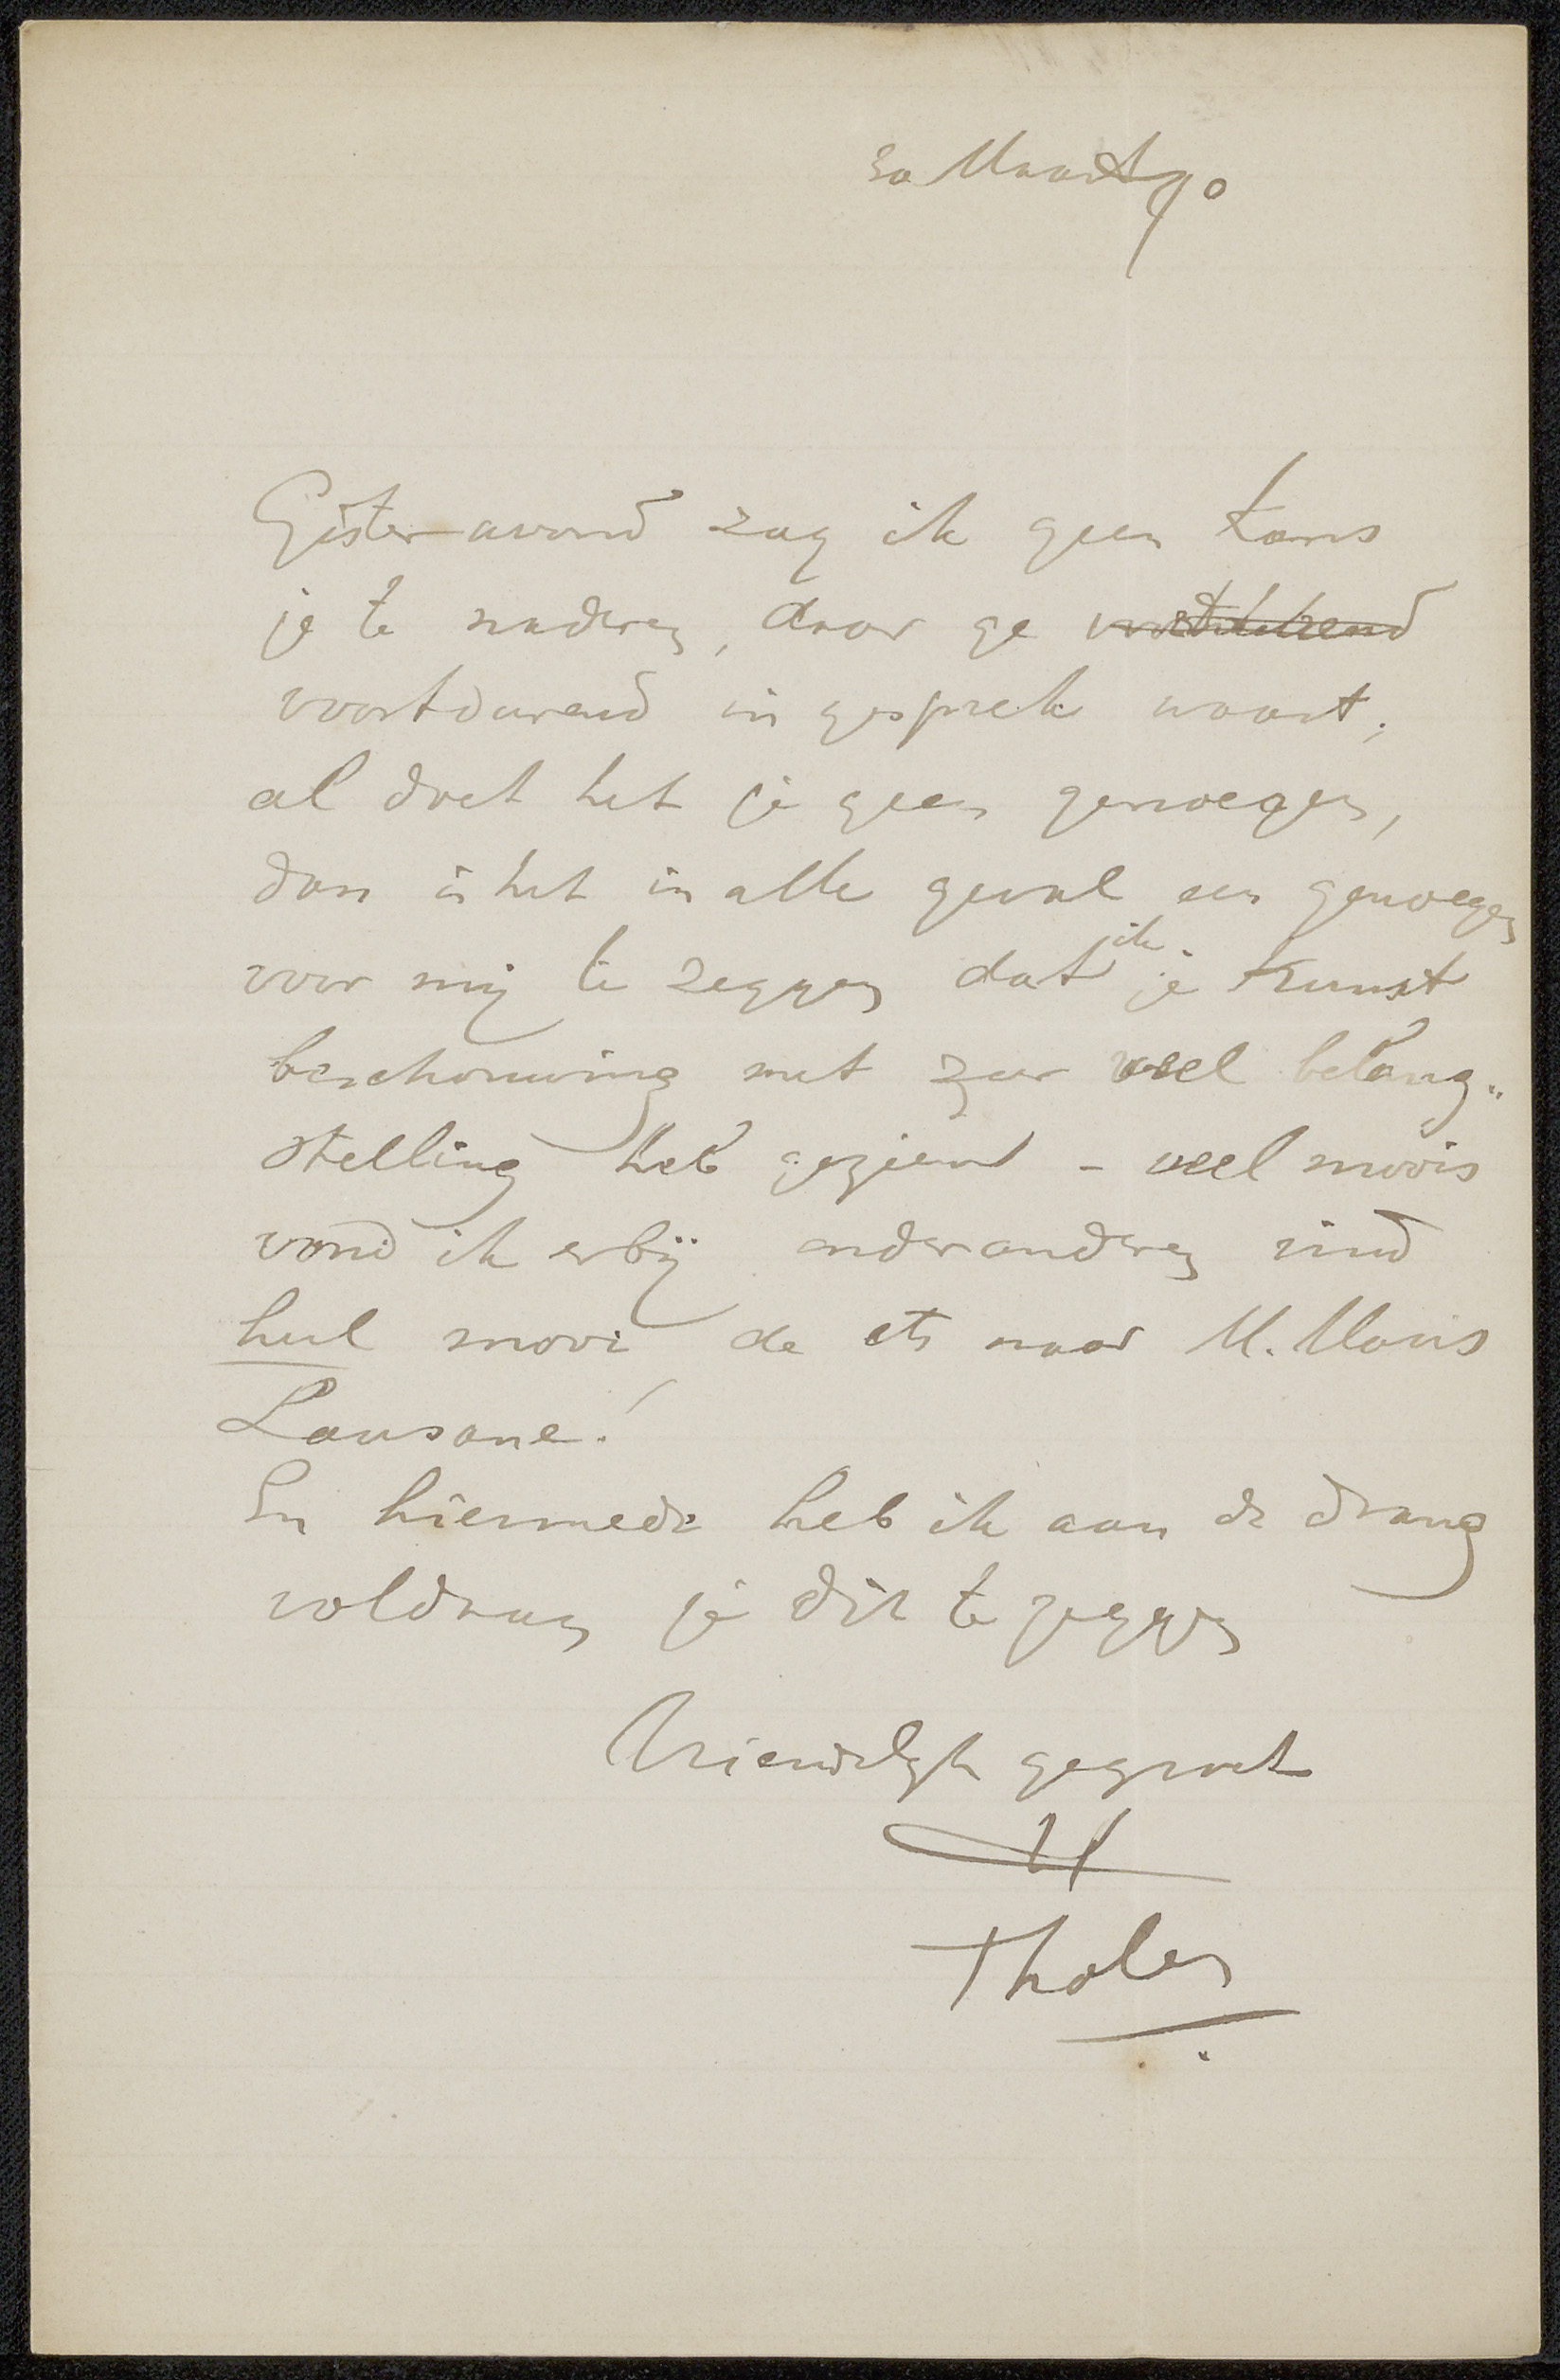 30 Maart 90
Gister avond zag ik geen kans
je te naderen, daar ge
voortdurend in gesprek waart;
al doet het je geen genoegen,
dan is het in alle geval een genoegen
voor mij te zeggen dat ik je kunst
beschouwing met zeer veel belang„
stelling heb gezien – veel moois
vond ik erbij onderanderen vind
heel mooi de ets naar M. Maris
Lausane!
En hiermede heb ik aan de drang
voldaan je dit te zeggen
Vriendelijk gegroet
Tholen